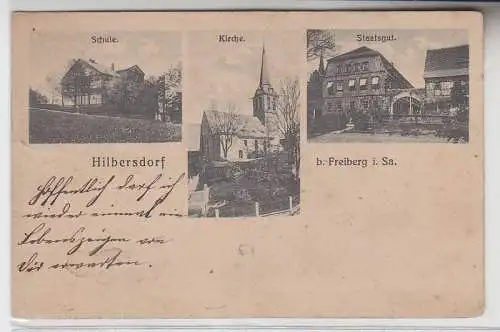 Schule.
Kirche.
Staatsgut.
Hilbersdorf
b. Freiberg i. Sa.
Hoffentlich darf ich
wieder einmal ein
Lebenszeichen von
Dir erwarten.